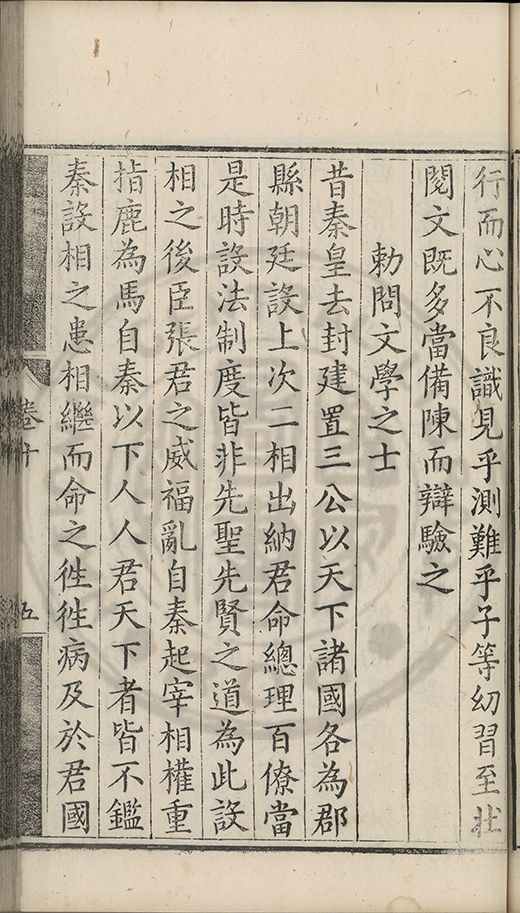 行而心不良識見乎測難乎子等幼習至壯
閱文既多當備陳而辯驗之
勅問文學之士
昔秦皇去封建置三公以天下諸國各為郡
縣朝廷設上次二相出納君命總理百僚當
是時設法制度皆非先聖先賢之道為此設
相之後臣張君之威福亂自秦起宰相權重
指鹿為馬自秦以下人人君天下者皆不鑑
秦設相之患相繼而命之徃徃病及於君國
卷十
五